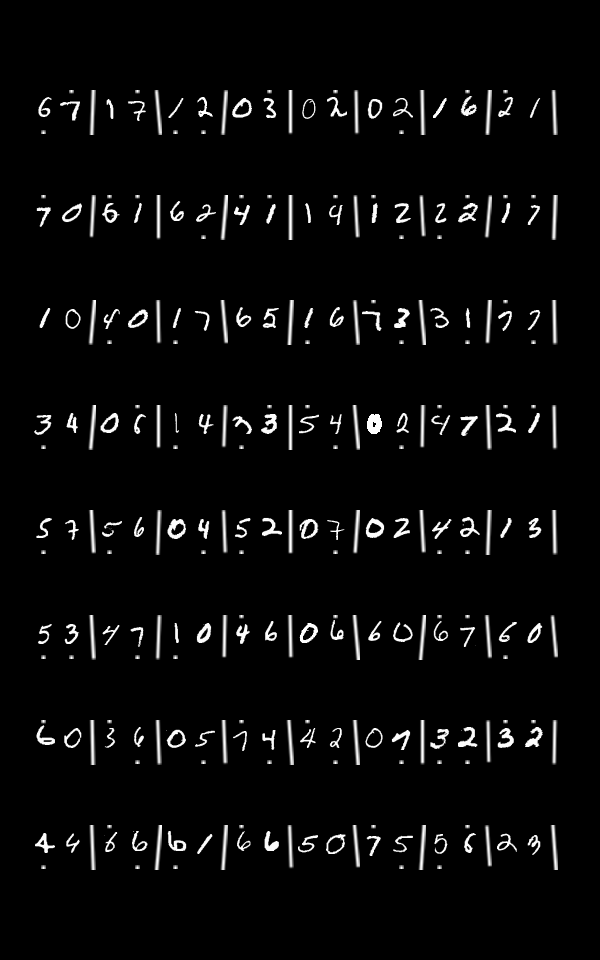 6̣ 7̇ | 1 7̇ | 1̣ 2̣ | 0 3̇ | 0 2̇ | 0 2̣ | 1 6̇ | 2̇ 1 |
7̇ 0 | 6̇ 1̇ | 6 2̣ | 4̇ 1̇ | 1 4̇ | 1̇ 2̣ | 2̣ 2̇ | 1̇ 7̇ |
1 0 | 4̇ 0 | 1̣ 7 | 6 5 | 1̣ 6 | 7̇ 3̣ | 3 1̣ | 7̇ 7̣ |
3̣ 4 | 0 6̇ | 1̣ 4 | 3̣ 3̇ | 5̇ 4̣ | 0 2̣ | 4̇ 7 | 2̇ 1̇ |
5̣ 7 | 5̣ 6 | 0 4̣ | 5̣ 2 | 0 7̣ | 0 2 | 4̣ 2̣ | 1 3 |
5̣ 3̣ | 4 7̣ | 1̣ 0 | 4̇ 6 | 0 6̇ | 6 0 | 6̇ 7̇ | 6̣ 0 |
6̇ 0 | 3̇ 6̣ | 0 5̣ | 7̇ 4 | 4̇ 2 | 0 7̣ | 3̣ 2̣ | 3̇ 2̇ |
4̣ 4 | 6̇ 6̣ | 6̣ 1 | 6̇ 6 | 5 0 | 7̇ 5̣ | 5̣ 6̇ | 2 3 |